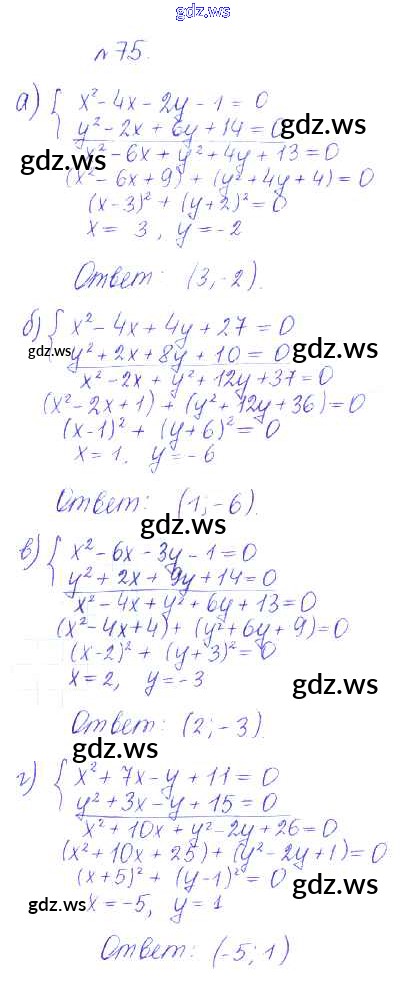 gdz.ws
№ 75.
а) { x² - 4x - 2y - 1 = 0
y² - 2x + 6y + 14 = 0
x² - 6x + y² + 4y + 13 = 0
gdz.ws
(x² - 6x + 9) + (y² + 4y + 4) = 0
gdz.ws
(x - 3)² + (y + 2)² = 0
x = 3, y = -2
Ответ: (3, -2).
gdz.ws
б) { x² - 4x + 4y + 27 = 0
gdz.ws
y² + 2x + 8y + 10 = 0
gdz.ws
x² - 2x + y² + 12y + 37 = 0
(x² - 2x + 1) + (y² + 12y + 36) = 0
(x - 1)² + (y + 6)² = 0
x = 1. y = -6
Ответ: (1; -6).
gdz.ws
в) { x² - 6x - 3y - 1 = 0
y² + 2x + 9y + 14 = 0
x² - 4x + y² + 6y + 13 = 0
(x² - 4x + 4) + (y² + 6y + 9) = 0
(x - 2)² + (y + 3)² = 0
x = 2, y = -3
gdz.ws
Ответ: (2; -3).
gdz.ws
г) { x² + 7x - y + 11 = 0
y² + 3x - y + 15 = 0
x² + 10x + y² - 2y + 26 = 0
(x² + 10x + 25) + (y² - 2y + 1) = 0
(x + 5)² + (y - 1)² = 0
gdz.ws
gdz.ws
x = -5, y = 1
Ответ: (-5; 1)